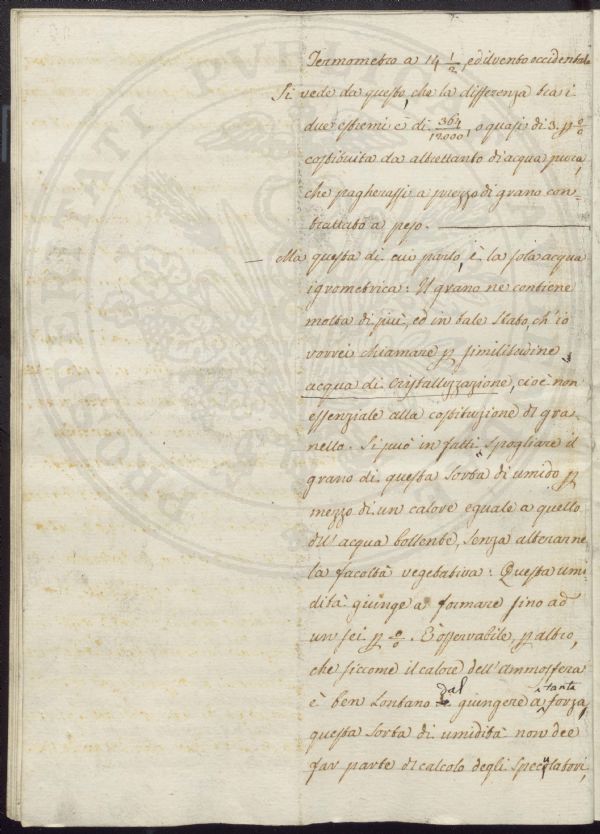 Termometro a 14 1/2, ed il vento occidentale
Si vede da questo, che la differenza tra i
due estremi è di 364/12000, o quasi di 3. p o/o
costituita da altrettanto di acqua pura,
che pagherassi a prezzo di grano con-
trattato a peso.
Ma questa di cui parlo, è la sola acqua
igrometrica: Il grano ne contiene
molta di più, ed in tale stato, ch'io
vorrei chiamare p similitudine
acqua di Cristallyzzazione, cioè non
essenziale alla costituzione di gra-
nello. Si può in fatti spogliare il
grano di questa sorta di umido p
mezzo di un calore eguale a quello
dell'acqua bollente, senza alterarne
la facoltà vegetativa: Questa umi-
dità giunge a formare fino ad
un sei p o/o. È osservabile, p altro,
che siccome il calore dell'ammosfera
è ben lontano dal giungere a tanta forza,
questa sorta di umidità non dee
far parte di calcolo degli speculatori,
PROSPERITATI PVBLICAE